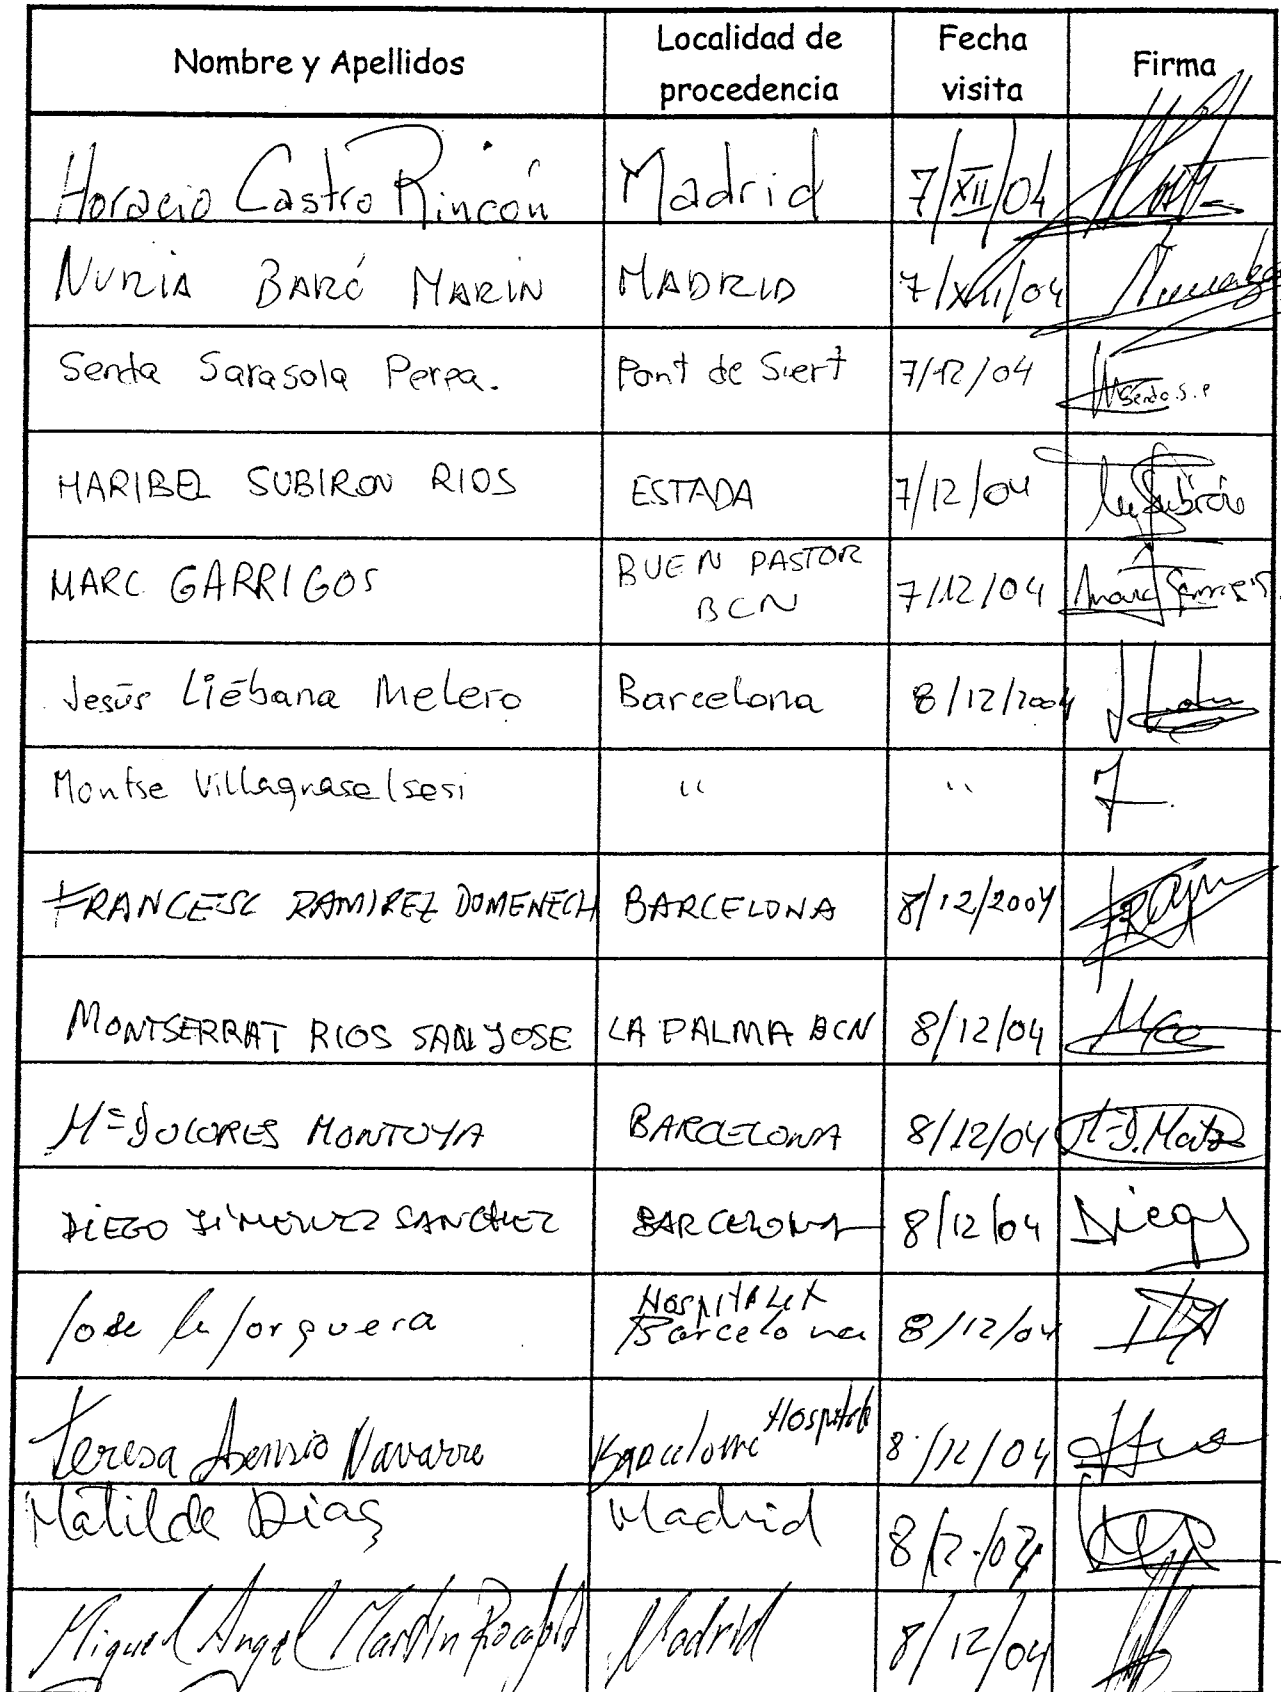 Nombre y Apellidos Localidad de procedencia Fecha visita Firma
Horacio Castro Rincón Madrid 7/XII/04
NURIA BARÓ MARIN MADRID 7/XII/04
Senda Sarasola Perpa. Pont de Suert 7/12/04 Senda.S.P
MARIBEL SUBIRON RIOS ESTADA 7/12/04
MARC GARRIGOS BUEN PASTOR BCN 7/12/04 Marc Garrigós
Jesús Liébana Melero Barcelona 8/12/2004
Montse " "
FRANCESC RAMIREZ DOMENECH BARCELONA 8/12/2004
MONTSERRAT RIOS SAN JOSE LA PALMA BCN 8/12/04
Mª DOLORES MONTOYA BARCELONA 8/12/04
DIEGO JIMENEZ SANCHEZ BARCELONA 8/12/04 Diego
Jose HOSPITALET Barcelona 8/12/04
Teresa Asensio Navarro Barcelona 8/12/04
Matilde Dias Madrid 8/12/04
Miguel Angel Martín Madrid 8/12/04